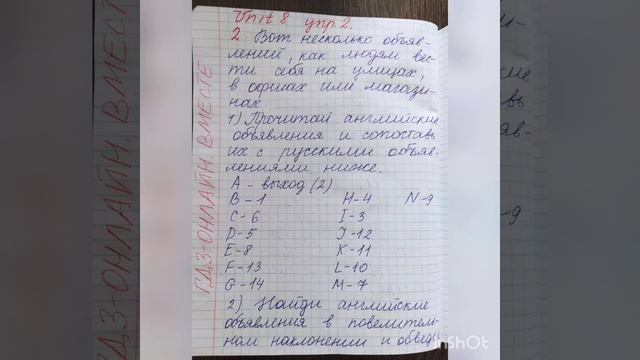 Unit 8 упр. 2.
2 Вот несколько объяв-
лений, как людям вес-
ти себя на улицах,
в офисах или магази-
нах.
1) Прочитай английские
объявления и сопоставь
их с русскими объяв-
лениями ниже.
A - выход (2)
B - 1 H - 4 N - 9
C - 6 I - 3
D - 5 J - 12
E - 8 K - 11
F - 13 L - 10
G - 14 M - 7
2) Найди английские
объявления в повелитель-
ном наклонении и обведи
ГДЗ-ОНЛАЙН. ВМЕСТЕ